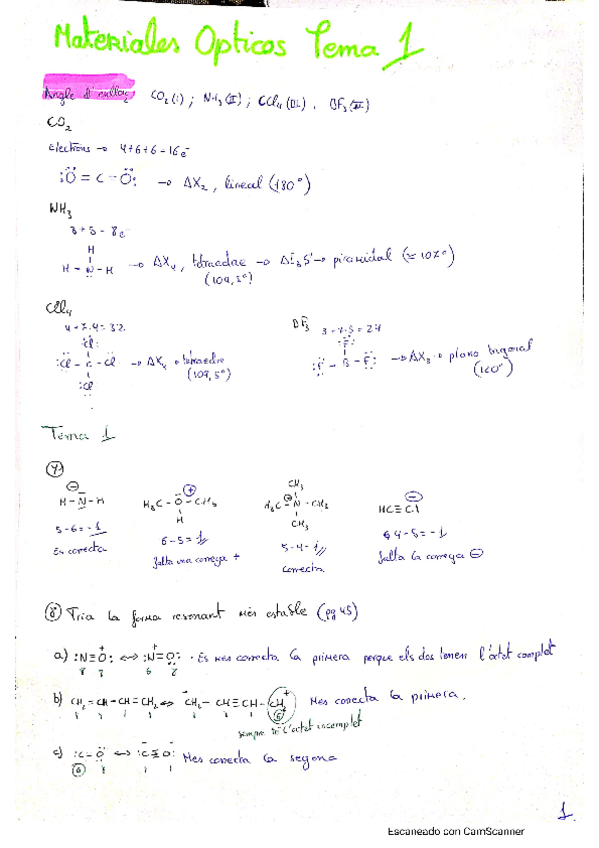 Materiales Opticos Tema 1
Angle d'enllaç: CO2 (I) ; NH3 (II) ; CCl4 (III) . BF3 (IV)
CO2
Electrons → 4+6+6 = 16e-
:Ö = C = Ö: → AX2, lineal (180°)
NH3
3+5 = 8e-
H
H - N - H → AX4, tetraedre → AE3S → piramidal (≈ 107°)
(109,5°)
CCl4
BF3
4+7·4 = 32
3+7·3 = 24
:Cl:
:F:
:Cl - C - Cl: → AX4 tetraedre
(109,5°)
:Cl:
:F - B - F: → AX3 plano trigonal
(120°)
Tema 1
H - N - H
H3C - O - CH3
H
CH3
H3C - N - CH3
CH3
HC≡C|
5-6 = -1
6-5 = 1
5-4 = 1
4-5 = -1
Es correcta
falta una carrega +
correcta
falta la carrega ⊖
⑧ Tria la forma resonant més estable (pg 45)
a) :N≡O: ↔ :N=O: · Es mes correcta la primera perque els dos tenen l'octet complet
8 8 6 8
b) CH2 = CH - CH = CH2 ↔ CH2 - CH=CH - CH2 + Mes correcta la primera.
sempre té l'octet incomplet
c) :C - O: ↔ :C≡O: Mes correcta la segona
1
Escaneado con CamScanner